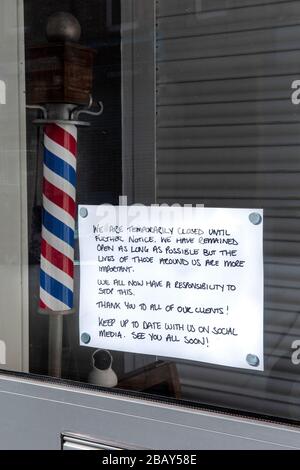 WE ARE TEMPORARILY CLOSED UNTIL
FURTHER NOTICE. WE HAVE REMAINED
OPEN AS LONG AS POSSIBLE BUT THE
LIVES OF THOSE AROUND US ARE MORE
IMPORTANT.
WE ALL NOW HAVE A RESPONSIBILITY TO
STOP THIS.
THANK YOU TO ALL OF OUR CLIENTS!
KEEP UP TO DATE WITH US ON SOCIAL
MEDIA. SEE YOU ALL SOON!
alamy
Image ID: 2BAY58E
www.alamy.com